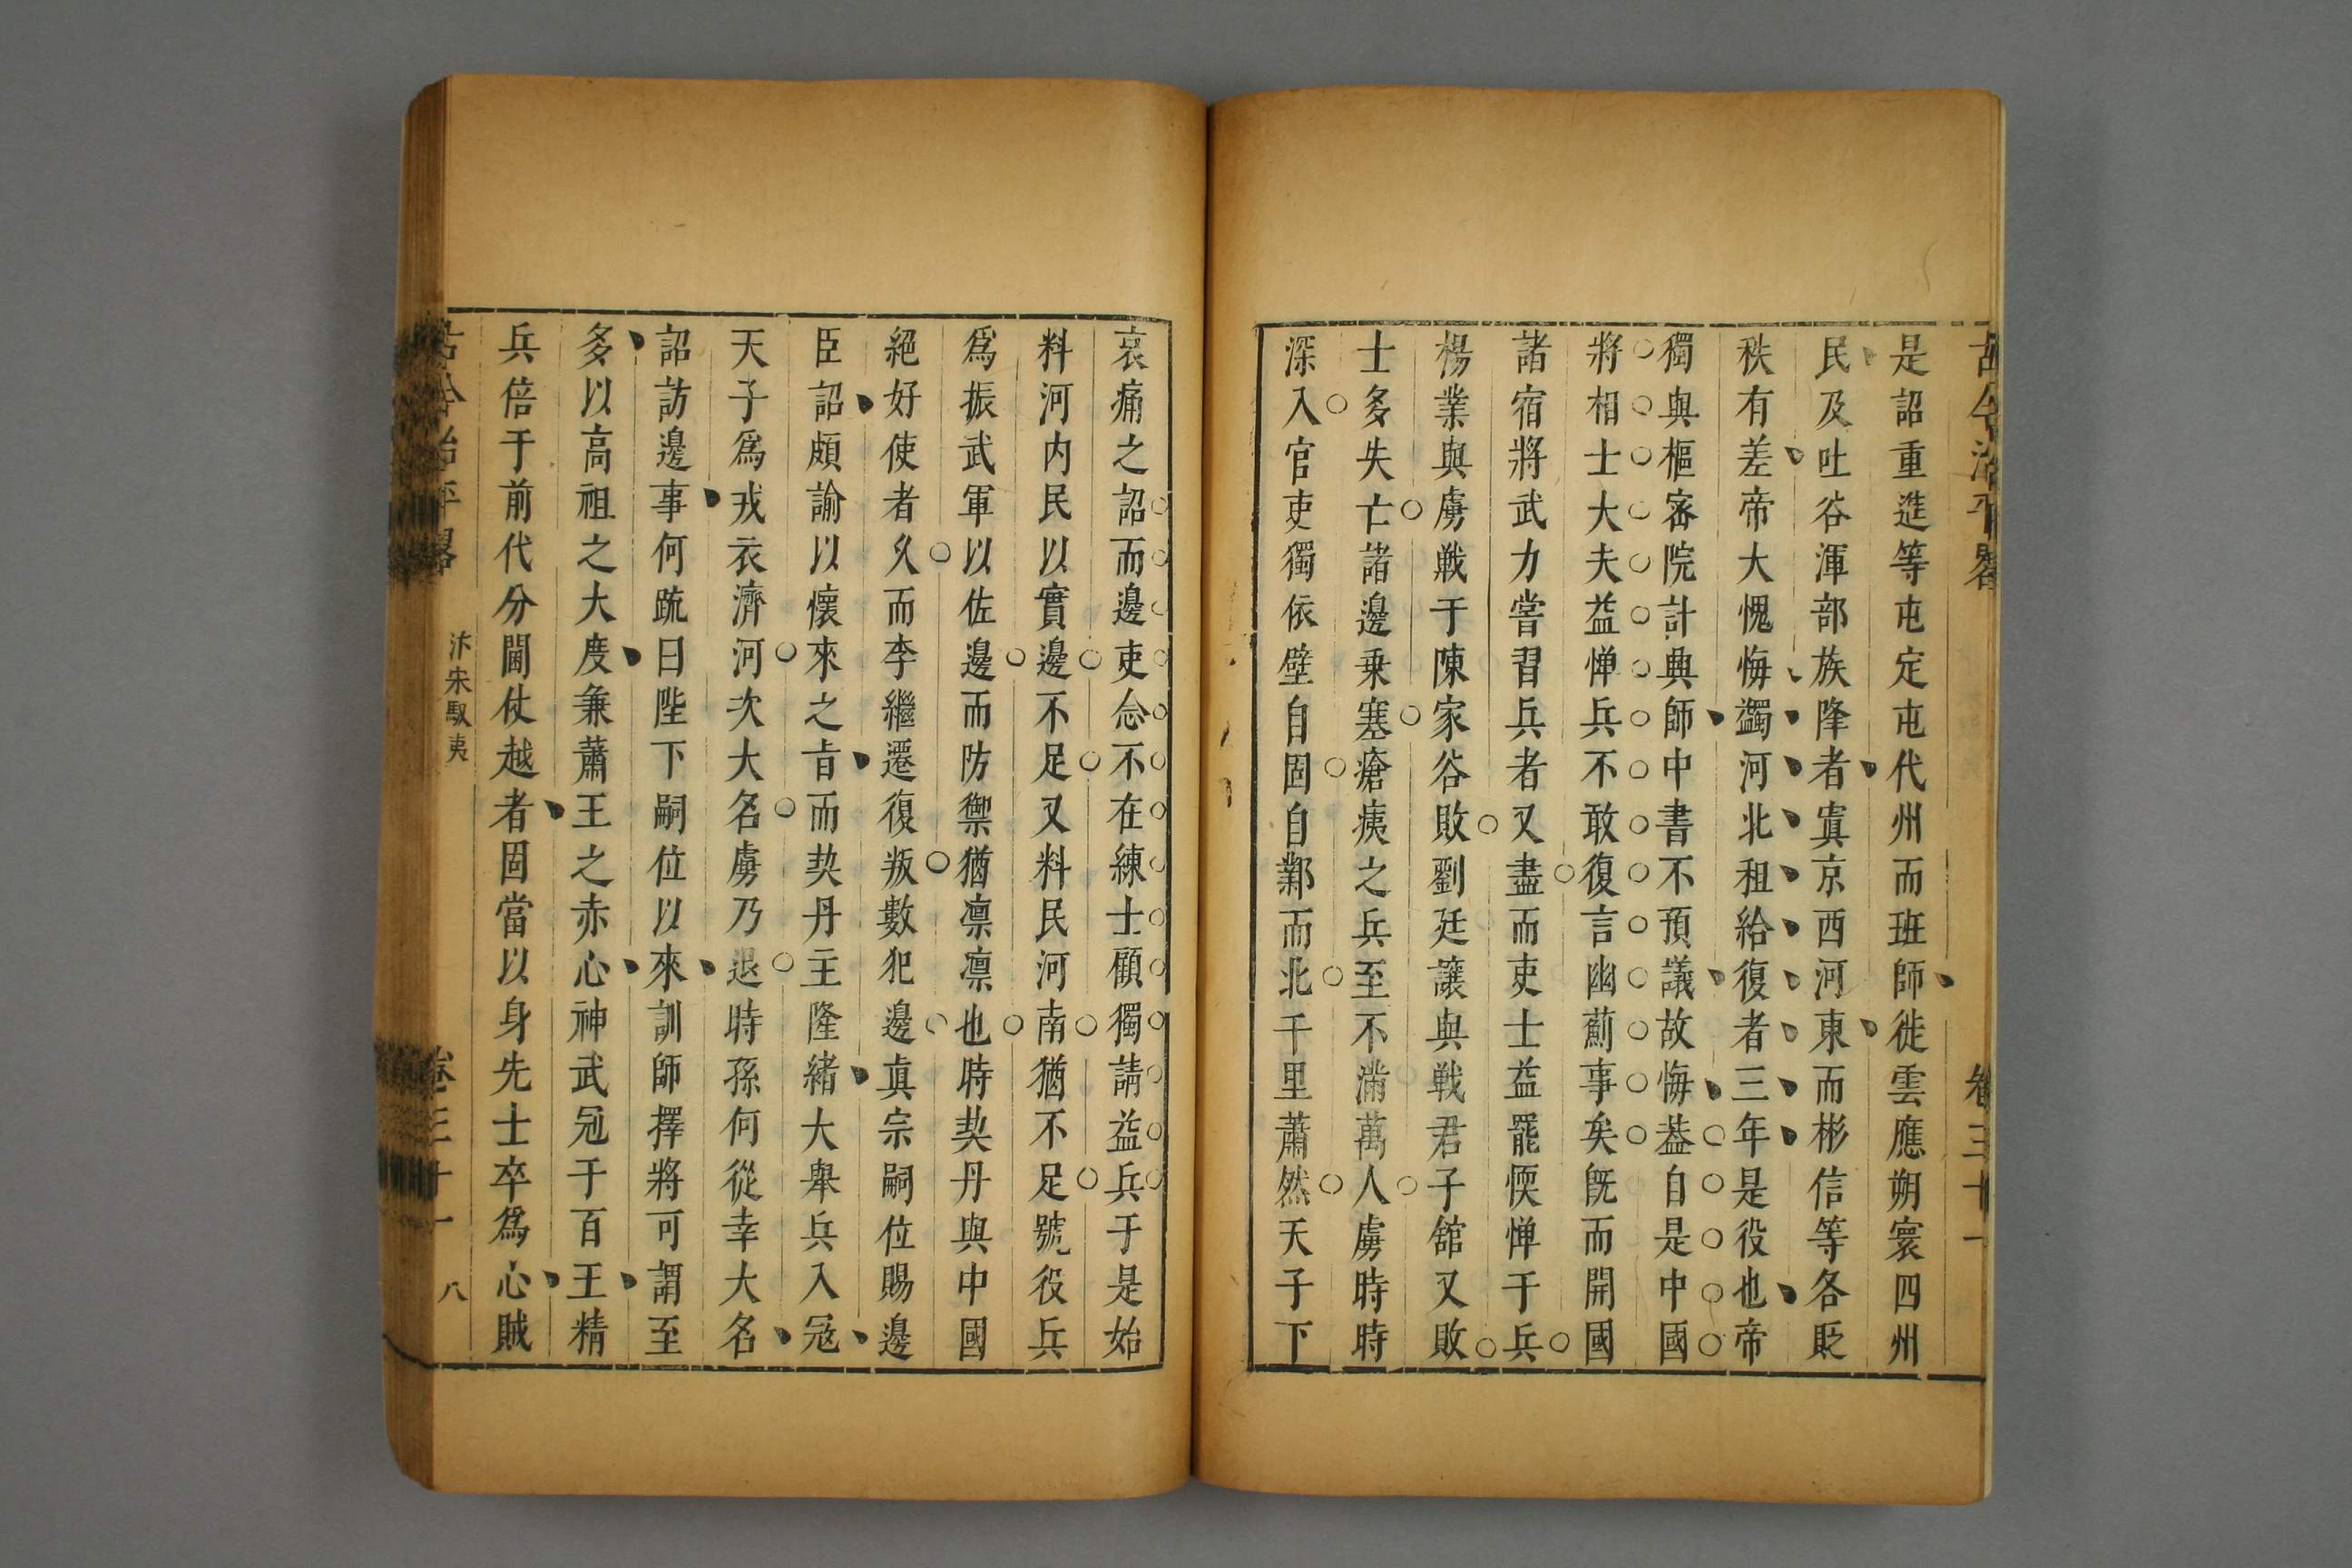 古今治平畧 卷三十一
是詔重進等屯定屯代州而班師徙雲應朔寰四州
民及吐谷渾部族降者寘京西河東而彬信等各貶
秩有差帝大愧悔蠲河北租給復者三年是役也帝
獨與樞宻院計興師中書不預議故悔葢自是中國
將相士大夫益憚兵不敢復言幽薊事矣旣而開國
諸宿將武力嘗習兵者又盡而吏士益罷愞憚于兵
楊業與虜戰于陳家谷敗劉廷讓與戰君子舘又敗
士多失亡諸邊乗塞瘡痍之兵至不滿萬人虜時時
深入官吏獨依壁自固自鄴而北千里蕭然天子下
哀痛之詔而邊吏念不在練士顧獨請益兵于是始
料河内民以實邊不足又料民河南猶不足號役兵
爲振武軍以佐邊而防禦猶凛凛也時契丹與中國
絕好使者久而李繼遷復叛數犯邊真宗嗣位賜邊
臣詔頗諭以懷來之㫖而契丹主隆緒大舉兵入冦
天子爲戎衣濟河次大名虜乃退時孫何從幸大名
詔訪邊事何疏曰陛下嗣位以來訓師擇將可謂至
多以高祖之大度兼蕭王之赤心神武冠于百王精
兵倍于前代分閫仗越者固當以身先士卒爲心賊
古今治平畧 汴宋馭夷 卷三十一 八